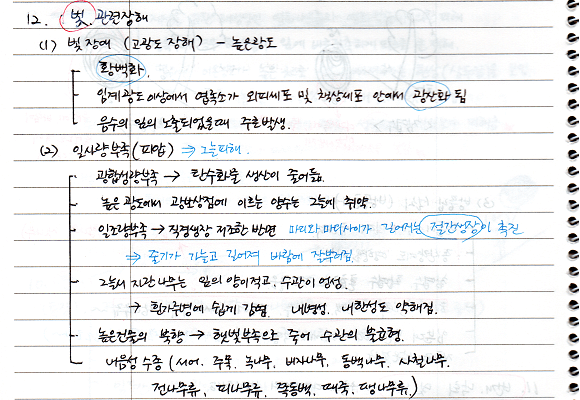 12. 빛 관련장해
(1) 빛 장애 (고광도 장해) - 높은광도
황백화.
임계광도 이상에서 엽록소가 외피세포 및 책상세포 안에서 광산화 됨
음수의 잎의 노출되었을때 주로발생.
(2) 일사량부족(피압) ⇒ 그늘피해.
광합성량부족 → 탄수화물 생산이 줄어듦.
높은 광도에서 광보상점에 이르는 양수는 그늘에 취약.
일조량부족 → 직경생장 저조한 반면 마디와 마디사이가 길어지는 절간생장이 촉진
⇒ 줄기가 가늘고 길어져 바람에 잘부러짐.
그늘서 자란나무는 잎의 양이적고, 수관이 엉성.
→ 흰가루병에 쉽게 감염. 내병성. 내한성도 약해짐.
높은건물의 북향 → 햇빛부족으로 죽어 수관의 불균형.
내음성 수종 (서어. 주목. 녹나무. 비자나무. 동백나무. 사철나무.
전나무류, 피나무류. 쪽동백. 때죽. 팽나무류.)